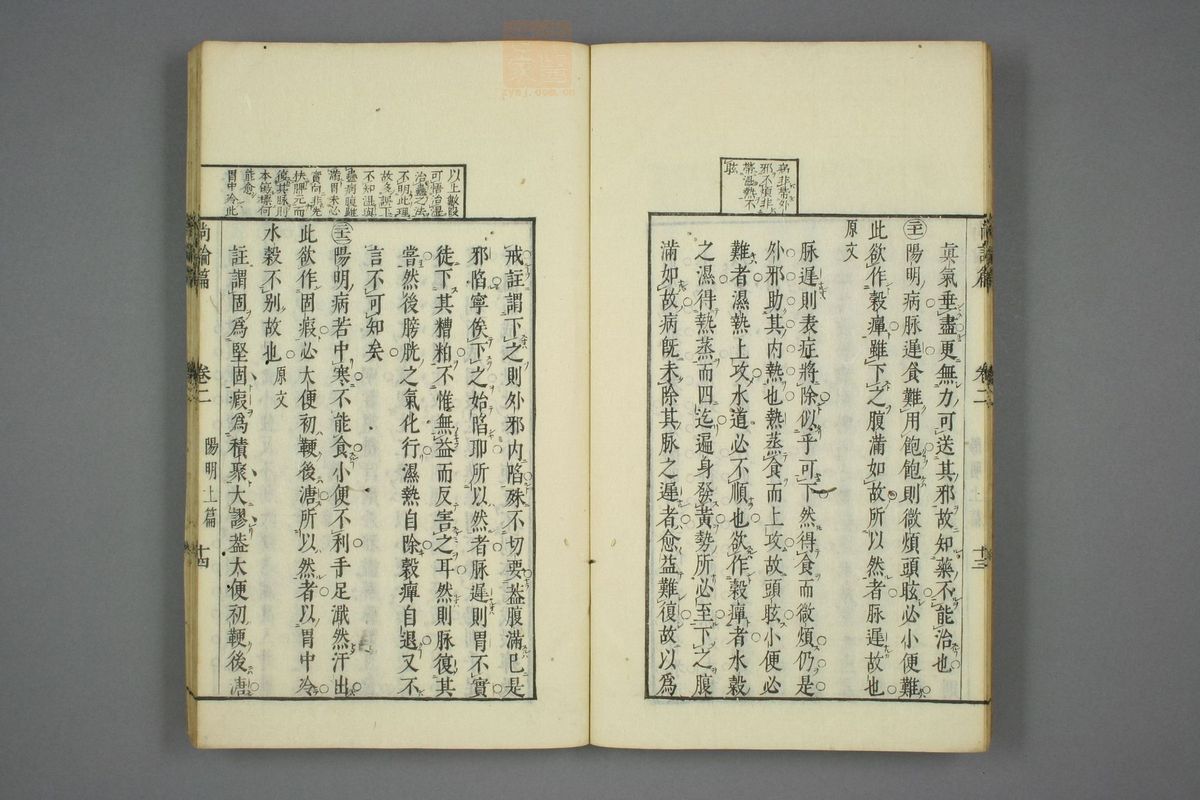 眞氣垂盡更無力可送其邪故知藥不能治也
㊁陽明病脉遲食難用飽飽則微煩頭眩必小便難
此欲作穀癉雖下之腹滿如故所以然者脉遲故也
原文
脉遲則表症將除似乎可下然得食而微煩仍是
外邪助其内熱也熱蒸食而上攻故頭眩小便必
難者濕熱上攻水道必不順也欲作穀癉者水穀
之濕得熱蒸而四迄遍身發黃勢所必至下之腹
滿如故病旣未除其脉之遲者愈益難復故以爲
病非常外
邪不須非
帶濕熱不
眩
尚論篇
卷二
陽明上篇
十三
戒註謂下之則外邪内陷殊不切要葢腹滿巳是
邪陷寧俟下之始陷耶所以然者脉遲則胃不實
徒下其糟粕不惟無益而反害之耳然則脉復其
嘗然後膀胱之氣化行濕熱自除穀癉自退又不
言不可知矣
陽明病若中寒不能食小便不利手足濈然汗出
此欲作固瘕必大便初鞕後溏所以然者以胃中冷
水穀不別故也 原文
註謂固爲堅固瘕爲積聚大謬葢大便初鞕後溏
以上數段
可悟治濕
治蠱之法
不明此理
故多誤下
不知濕與
蠱病腹雖
滿胃未必
實向非先
扶脾元而
復其脉則
本鏡標何
能愈
胃中冷此
尚論篇
卷二
陽明上篇
十四
zysj.com.cn